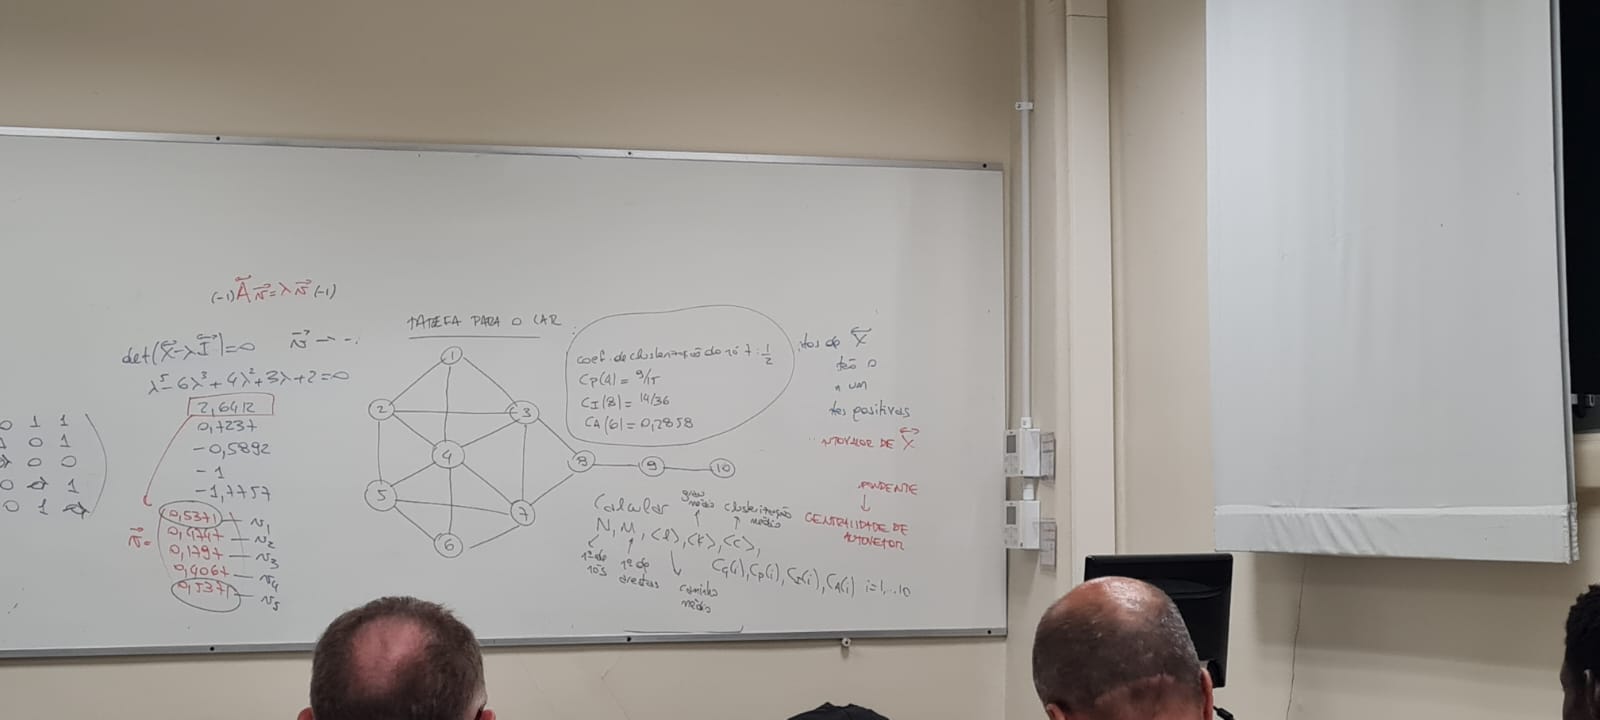 (-1) A v = λ v (-1)
det(X-λI)=0 v → -.
λ⁵-6λ³+4λ²+3λ+2=0
2,6412
0,7237
-0,5892
-1
-1,7757
0 1 1
0 1
0 0
1
0 1
v=
0,5371 v₁
0,4747 v₂
0,1797 v₃
0,4067 v₄
0,5371 v₅
TAREFA PARA O LAR
1
2
3
4
5
6
7
8
9
10
coef. de clusterização do nó 7: 1/2
CP(4) = 9/15
CI(8) = 14/36
CA(6) = 0,2858
Calcular
grau médio
clusterização média
N, M, <l>, <k>, <c>,
nº de nós
nº de arestas
caminho médio
CG(i), CP(i), CI(i), CA(i) i=1,..10
tos de X
tão o
um
tes positivas
NTOVALOR DE X
PONDENTE
↓
CENTRALIDADE DE
AUTOVETOR